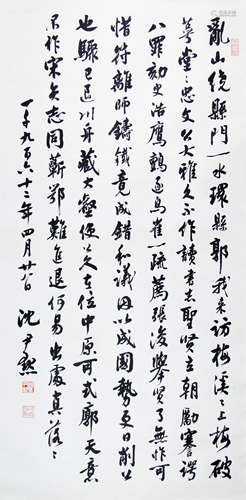 亂山繞縣門一水環縣郭我來訪梅溪〻上梅破
萼堂〻忠文公大雅久不作讀書志聖賢立朝勵謇諤
八罪劾史浩鷹鸇逐鳥雀一疏薦張浚舉賢了無怍可
惜符離師鑄鐵竟成錯和議因以成國勢更日削公
也驥已舟藏大壑使公久在位中原可式廓天意
不作宋公志同蘄鄂難進退何易出處真落〻
一千九百六十三年四月廿日 沈尹默